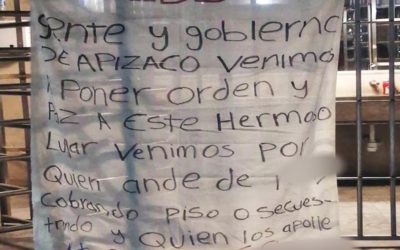 Gente y gobierno
DE APIZACO VENIMO
A PONER ORDEN y
PAZ A Este HERMOSO
Lugar VENIMOS POR
Quien ande de
Cobrando Piso o secues-
trando y Quien los apolle